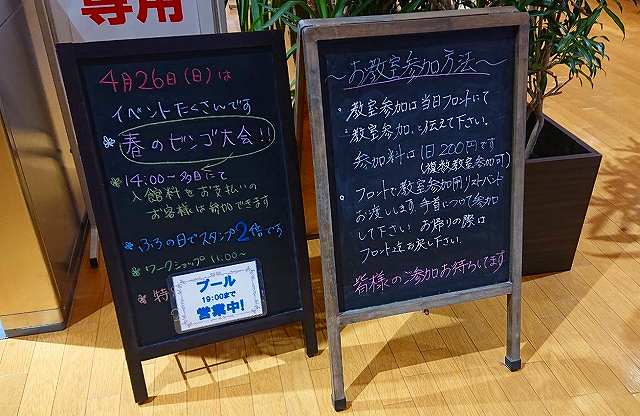 専用
4月26日(日)は
イベントたくさんです
春のビンゴ大会!!
14:00~多目にて
入館料をお支払いの
お客様は参加できます
ふろの日でスタンプ2倍です
ワークショップ 11:00~
特
プール
19:00まで
営業中!
~お教室参加方法~
・教室参加は当日フロントにて
「教室参加」と伝えて下さい。
参加料は1日200円です
(複数教室参加可)
・フロントで教室参加用リストバンド
お渡しします。手首につけて参加
して下さい お帰りの際は
フロントまでお戻し下さい。
皆様のご参加お待ちしてます